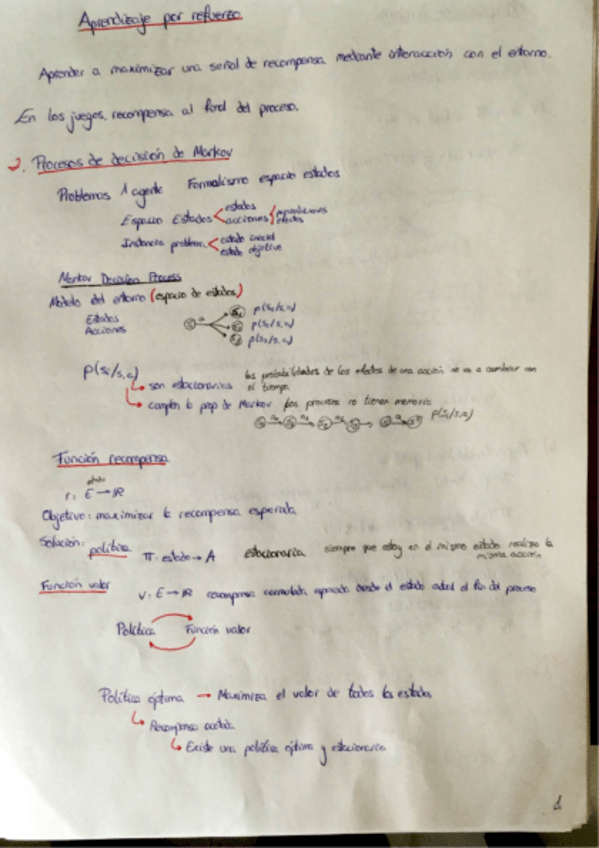 Aprendizaje por refuerzo
Aprender a maximizar una señal de recompensa mediante interacción con el entorno.
En los juegos, recompensa al final del proceso.
2. Procesos de decisión de Markov
Problemas 1 agente Formalismo espacio estados
Espacio Estados < estados
acciones { precondiciones
efectos
Instancia problema < estado inicial
estado objetivo
Markov Decision Process
Modelo del entorno (espacio de estados)
Estados
Acciones
p(s1/s,a)
p(s2/s,a)
p(s3/s,a)
p(si/s,a)
son estacionarias las probabilidades de los efectos de una acción no va a cambiar con
el tiempo.
cumplen la prop de Markov los procesos no tienen memoria
Función recompensa
estado
r: E → ℝ
Objetivo: maximizar la recompensa esperada
Solución: política π: estado → A estacionaria siempre que estoy en el mismo estado realizo la
misma acción
Función valor v: E → ℝ recompensa acumulada desde el estado actual al fin del proceso
Política Función valor
Política óptima → Maximiza el valor de todos los estados
Recompensa acotada
Existe una política óptima y estacionaria
1